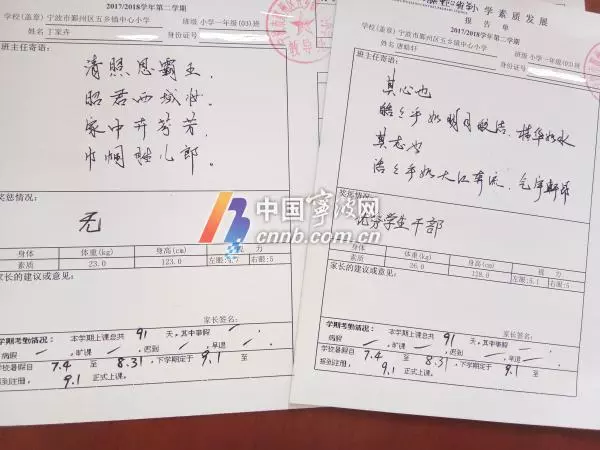 2017/2018学年第二学期
学校(盖章)宁波市鄞州区五乡镇中心小学
班级 小学一年级(03)班
姓名 丁家卉
身份证号
班主任寄语:
清照思霸王,
昭君西域妆,
家中卉芬芳,
巾帼胜儿郎。
奖惩情况:
无
身体 体重(kg) 身高(cm) 视 力
素质 23.0 123.0 左眼:5.1 右眼:5
家长的建议或意见:
家长签名:
学期考勤情况: 本学期上课总共 91 天,其中事假 一 ,
病假 一 , 旷课 一 , 迟到 一 , 早退 一 。
学校暑假自 7.4 至 8.31 ,下学期定于 9.1 至
报到注册, 9.1 正式上课。
学素质发展
报 告 单
2017/2018学年第二学期
学校(盖章)宁波市鄞州区五乡镇中心小学
班级 小学一年级(03)班
姓名 唐皓轩
身份证号
班主任寄语:
其心也
皓皓乎如明月皎洁、精华如水
其志也
浩浩乎如大江奔流、气宇轩昂
奖惩情况:
优秀学生干部
身体 体重(kg) 身高(cm) 视 力
素质 26.0 128.0 左眼:5.1 右眼:5
家长的建议或意见:
家长签名:
学期考勤情况: 本学期上课总共 91 天,其中事假 一 ,
病假 一 , 旷课 一 , 迟到 一 , 早退 一 。
学校暑假自 7.4 至 8.31 ,下学期定于 9.1 至
报到注册, 9.1 正式上课。
中国宁波网
cnnb.com.cn